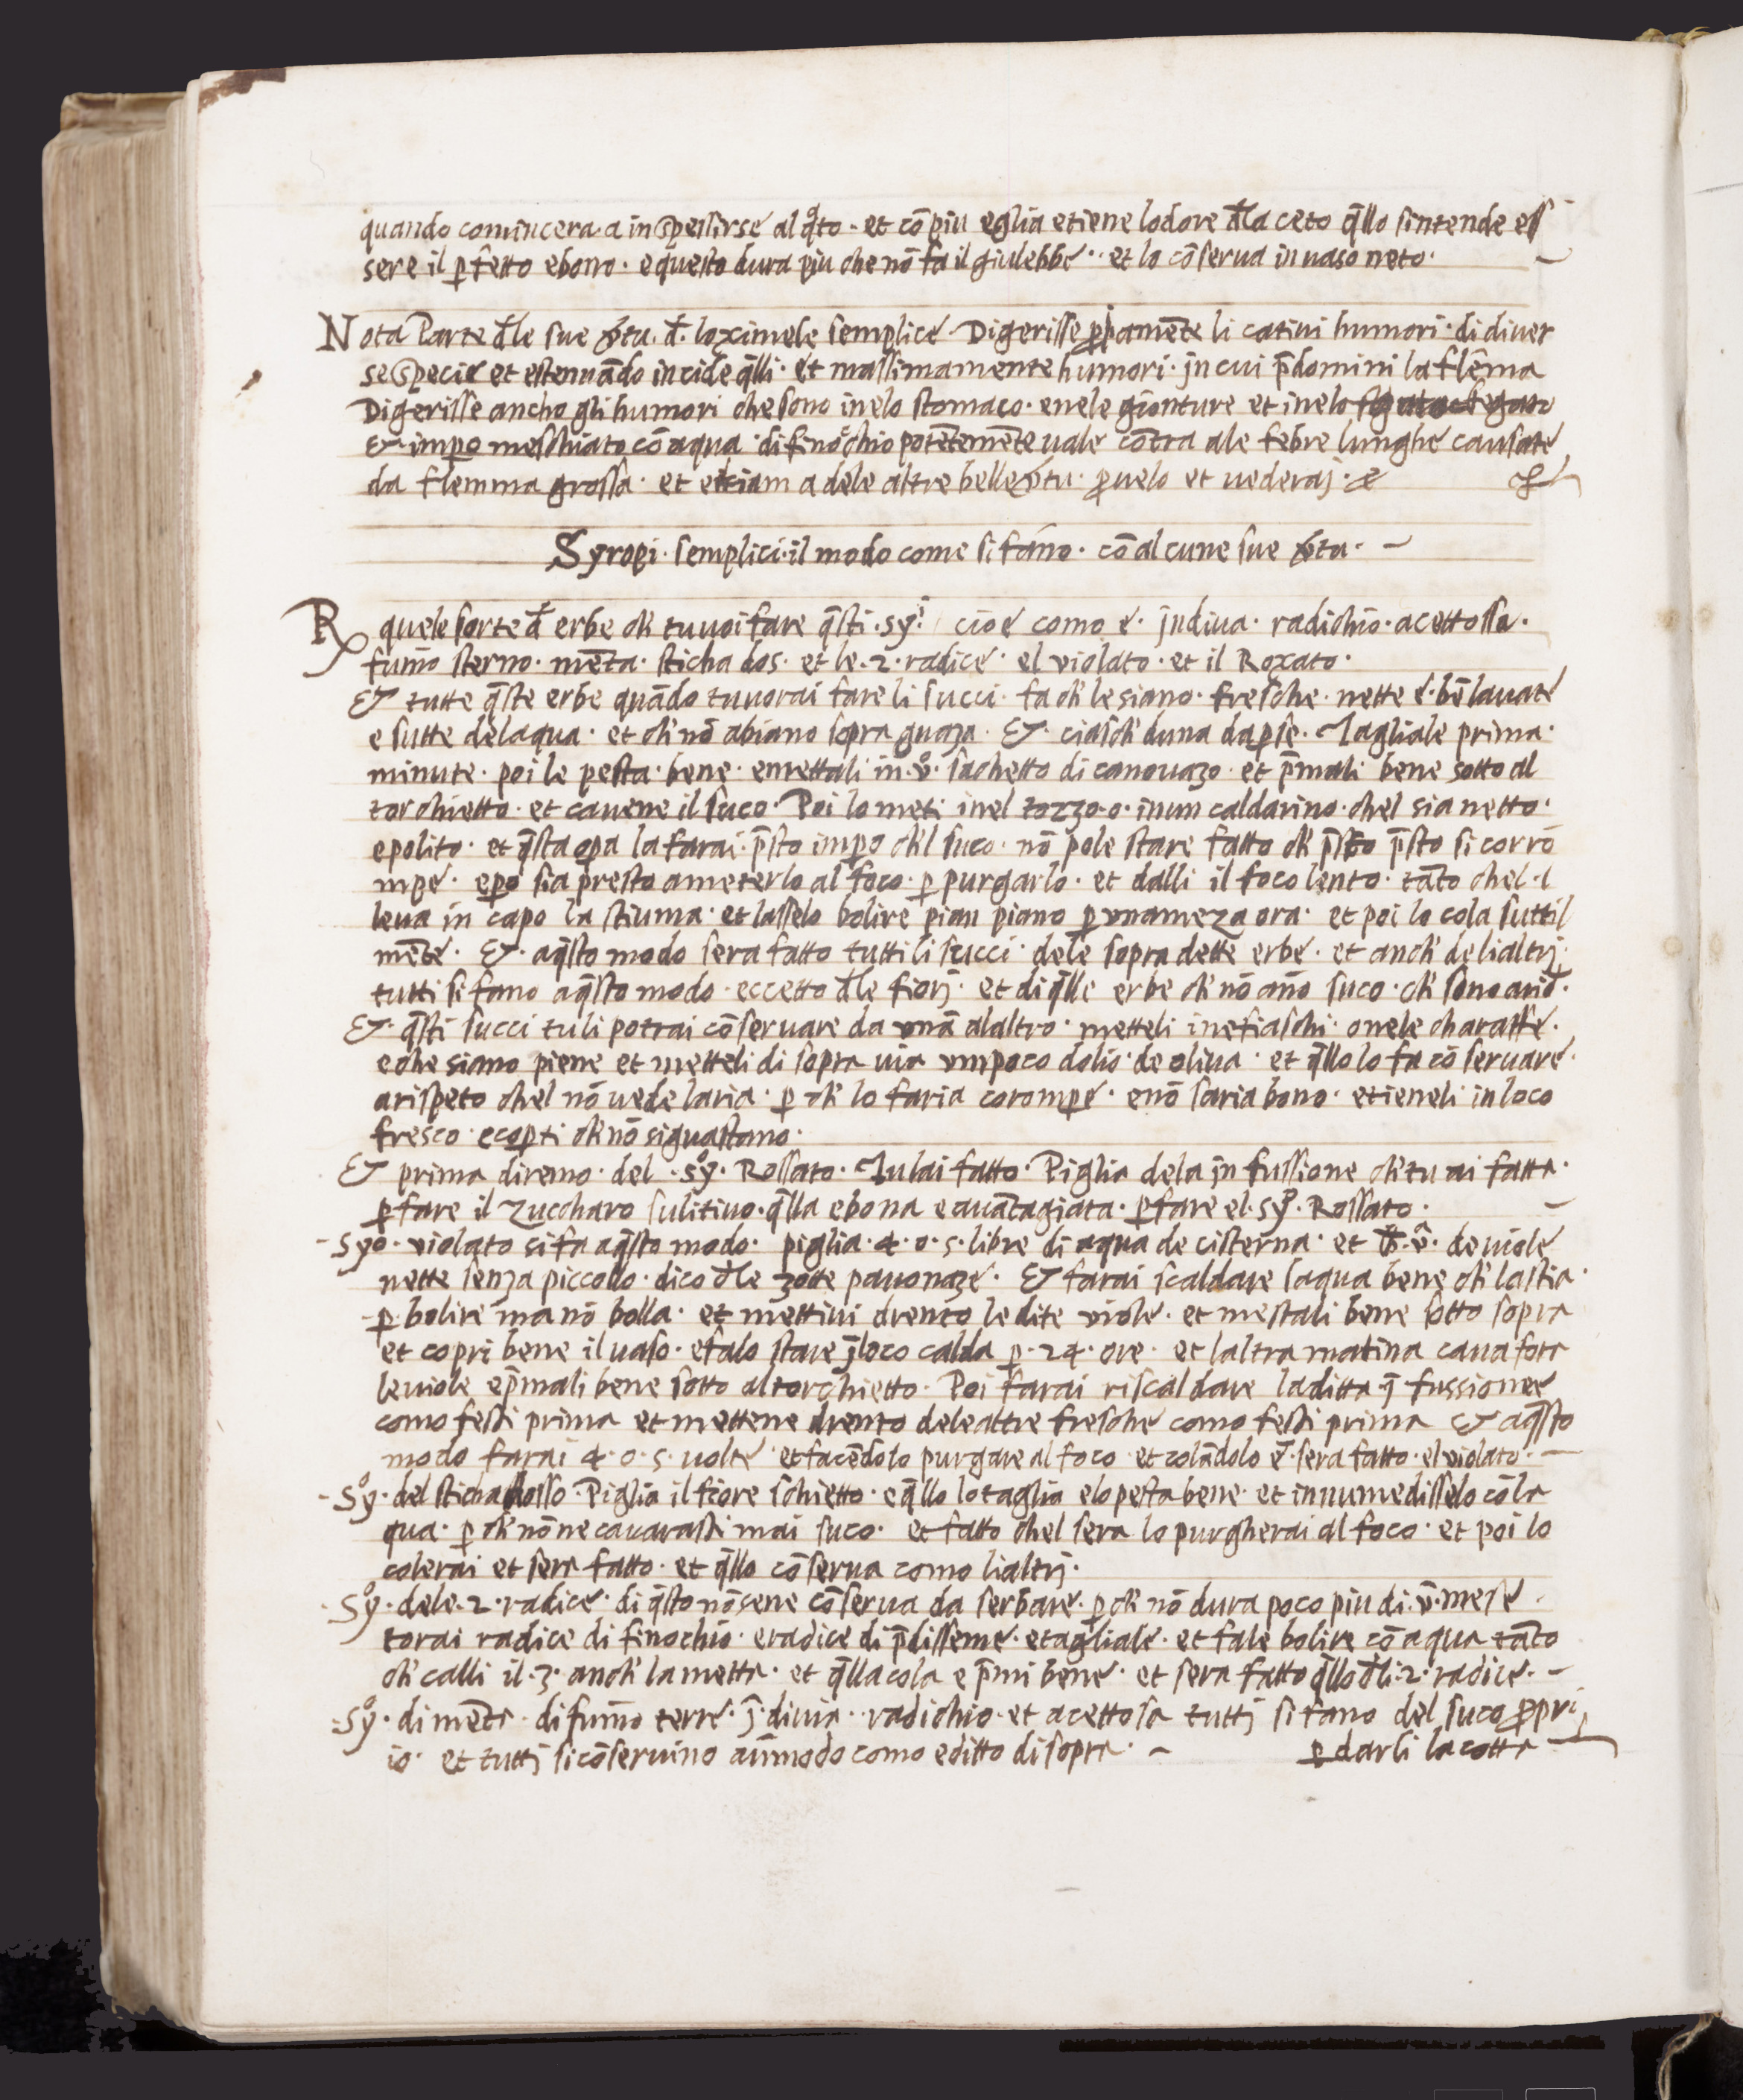 quando comincera a inspessirse al q̊to · et cō piu eglia etiene lodore đla ceto q̄llo sintende ess
sere il ꝑfetto ebono · e questo dura piu che nō fa il giulebbe · et lo cōserua in uaso neto ·
Nota Parte đle sue v̄tu · đ · loximele semplice Digerisse ꝑpamēte li catiui humori · di diuer
se specie et estenuādo incide q̄lli · et massimamente humori · jn cui p̄domini la flēma
Digerisse ancho gli humori che sono inelo stomaco · enele gionture et inelo fegato
& impo meschiato cō aqua · di finochio potētemēte uale cōtra ale febre lunghe causate
da flemma grossa · et etiam a dele altre belle v̄tu · ꝓuelo et uederaj ·
Syropi · semplici · il modo come si fāno · cō alcune sue v̄tu ·
℞ quele sorte đ erbe ch' tu uoi fare q̄sti · syi̊ · cioe como e · jndiua · radichio · acettossa ·
fumo sterno · mēta · sticha dos · et le · 2 · radice · el violato · et il Roxato ·
& tutte q̄ste erbe quādo tu uorai fare li succi · fa ch' le siano · fresche · nette e · bē lauate
e sutte delaqua · et ch' nō abiano sopra guaza · & · ciasch' duna da ꝑse · Tagliale prima ·
minute · poi le pesta · bene · emettali in · v̊ · sachetto di canouazo · et p̄mali bene sotto al
torchietto · et cauene il suco · Poi lo meti inel tozzo · o · inun caldarino · chel sia netto ·
epolito · et q̄sta oꝑa la farai · p̄sto impo ch'l suco · nō pole stare fatto ch' p̄sto p̄sto si corrō
mpe · eꝑo sia presto ameterlo al foco · ꝑ purgarlo · et dalli il foco lento · tāto chel · l
leua in capo la stiuma · et lasselo bolire pian piano ꝑ vnameza ora · et poi lo cola suttil
mēte · & · aq̄sto modo sera fatto tutti li succi · dele sopra dette erbe · et anch' de li altrj ·
tutti si fano aq̄sto modo · eccetto đle fiorj · et di q̄lle erbe ch' nō āno suco · ch' sono arid̄ ·
& · q̄sti succi tu li potrai cōseruare da vnā alaltro · metteli ine fiaschi · onele charaffe ·
e che siano piene et metteli di sopra uia vmpoco dolio · de oliua · et q̄llo lo fa cō seruare ·
arispeto chel nō uede laria · ꝑ ch' lo faria corompe · enō saria bono · etieneli in loco
fresco · ecoꝑti ch' nō si guastano ·
& prima diremo · del · sẙ · Rossato · Tu lai fatto · Piglia dela jn fussione ch' tu ai fatta ·
ꝑ fare il zuccharo sulitiuo · q̄lla ebona e auātagiata · ꝑ fare el · sẙ · Rossato ·
- syo · violato si fa aq̄sto modo · piglia · 4 · o · 5 · libre di aqua de cisterna · et · v̊ · de uiole
nette senza piccollo · dico đle zotte pauonaze · & farai scaldare laqua bene ch' la stia ·
ꝑ bolire ma nō bolla · et mettiui drento le dite viole · et mestali bene sotto sopra
et copri bene il uaso · efalo stare j̄ loco calda ꝑ · 24 · ore · et laltra matina caua fora
le uiole ep̄mali bene sotto al torchietto · Poi farai riscaldare la ditta j̄ fussionee
como festi prima et mettene drento dele altre fresche como festi prima & aq̄sto
modo farai 4 · o · 5 · uolte · et facēdolo purgare al foco · et colādolo e · sera fatto · el violato ·
- Sẙ · del stichadosso · Piglia il fiore schietto · e q̄llo lo taglia elo pesta bene · et innumedisselo cō la
qua · ꝑ ch' nō ne cauarasti mai suco · et fatto chel sera lo purgherai al foco · et poi lo
colerai et sera fatto · et q̄llo cōserua como lialtrj ·
Sẙ · dele · 2 · radice · di q̄sto nō sene cōserua da serbare · ꝑ ch' nō dura poco piu di · v̄ · mese ·
torai radice di finochio · eradice di p̄disseme · etagliale · et fale bolire cō aqua tāto
ch' calli il · 3 · anch' la metta · et q̄lla cola e p̄mi bene · et sera fatto q̄llo đli · 2 · radice ·
Sẙ · di mēta · di fumo terre · j̄ · diuia · radichio · et acettosa tuttj si fano del suco ꝓpri
io · et tuttj si cōseruino aūmodo como editto di sopra · ꝑ darli la cotta